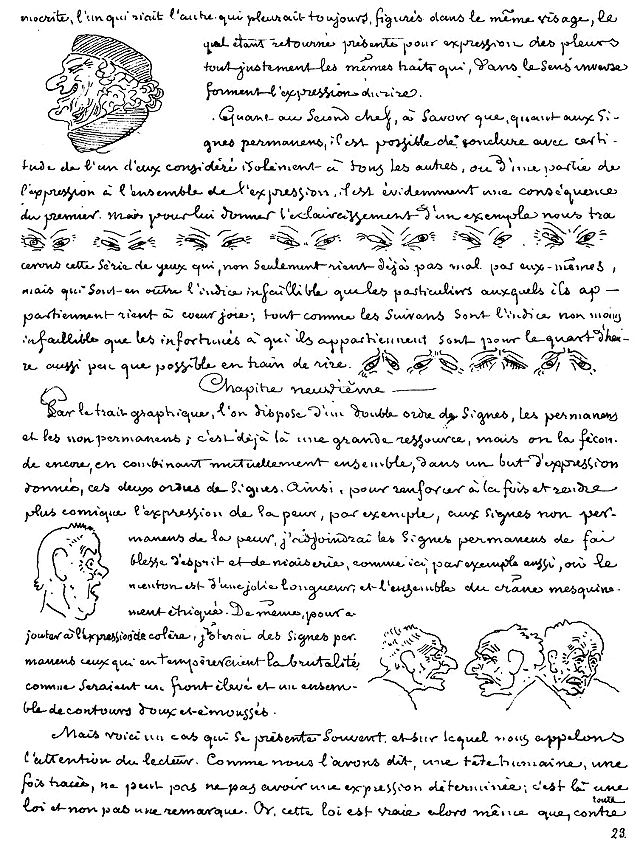 mocrite, l'un qui riait l'autre qui pleurait toujours, figurés dans le même visage, le
quel étant retourné présente pour expression des pleurs
tout justement les mêmes traits qui, dans le sens inverse
forment l'expression du rire.
Quant au second chef, à savoir que, quant aux Si-
gnes permanens, il est possible de conclure avec certi-
tude de l'un d'eux considéré isolément à tous les autres, ou d'une partie de
l'expression à l'ensemble de l'expression, il est évidemment une conséquence
du premier. Mais pour lui donner l'éclaircissement d'un exemple nous tra
cerons cette série de yeux qui, non seulement rient déjà pas mal par eux-mêmes,
mais qui sont en outre l'indice infaillible que les particuliers auxquels ils ap-
partiennent rient à coeur joie; tout comme les suivans sont l'indice non moins
infaillible que les infortunés à qui ils appartiennent sont pour le quart d'heu-
re aussi peu que possible en train de rire.
Chapitre neuvième
Par le trait graphique, l'on dispose d'un double ordre de signes, les permanens
et les non permanens; c'est déjà là une grande ressource, mais on la fécon-
de encore, en combinant mutuellement ensemble, dans un but d'expression
donnée, ces deux ordres de signes. Ainsi, pour renforcer à la fois et rendre
plus comique l'expression de la peur, par exemple, aux signes non per-
manens de la peur, j'adjoindrai les signes permanens de fai
blesse d'esprit et de niaiserie, comme ici, par exemple aussi, où le
menton est d'une jolie longueur, et l'ensemble du crâne mesquine-
ment étriqué. De même, pour a-
jouter à l'expression de colère, j'ôterai des signes per
manens ceux qui en tempèreraient la brutalité,
comme seraient un front élevé et un ensem-
ble de contours doux et émoussés.
Mais voici un cas qui se présente souvent, et sur lequel nous appelons
l'attention du lecteur. Comme nous l'avons dit, une tête humaine, une
fois tracée, ne peut pas ne pas avoir une expression déterminée; c'est là une
loi et non pas une remarque. Or, cette loi est vraie alors même que, contre
toute
23.